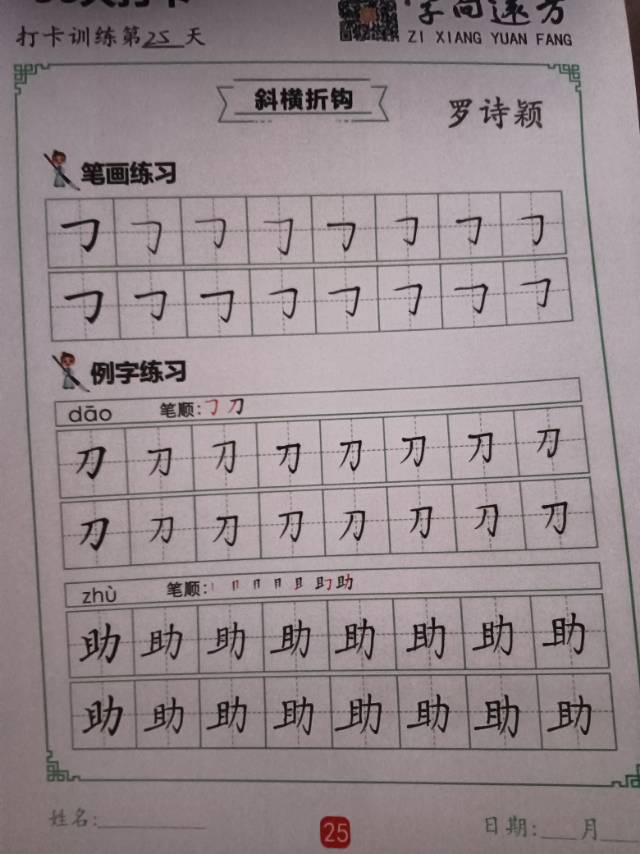 字向远方
打卡训练第25天
ZI XIANG YUAN FANG
斜横折钩
罗诗颖
笔画练习
㇆ ㇆ ㇆ ㇆ ㇆ ㇆ ㇆ ㇆
㇆ ㇆ ㇆ ㇆ ㇆ ㇆ ㇆ ㇆
例字练习
dāo 笔顺: ㇆ 刀
刀 刀 刀 刀 刀 刀 刀 刀
刀 刀 刀 刀 刀 刀 刀 刀
zhù 笔顺: 助
助 助 助 助 助 助 助 助
助 助 助 助 助 助 助 助
姓名:
25
日期: 月